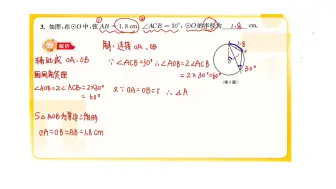 3. 如图,在⊙O中,弦AB=1.8cm,∠ACB=30°,⊙O的半径为 1.8 cm.
解析
辅助线 OA、OB
圆周角定理
∠AOB=2∠ACB=2×30°
=60°
S△AOB为等边三角形
OA=OB=AB=1.8cm
解:连接OA、OB
∵∠ACB=30°∴∠AOB=2∠ACB
=2×30°=60°
又∵OA=OB=r ∴△A
1.8
30°
(第3题)